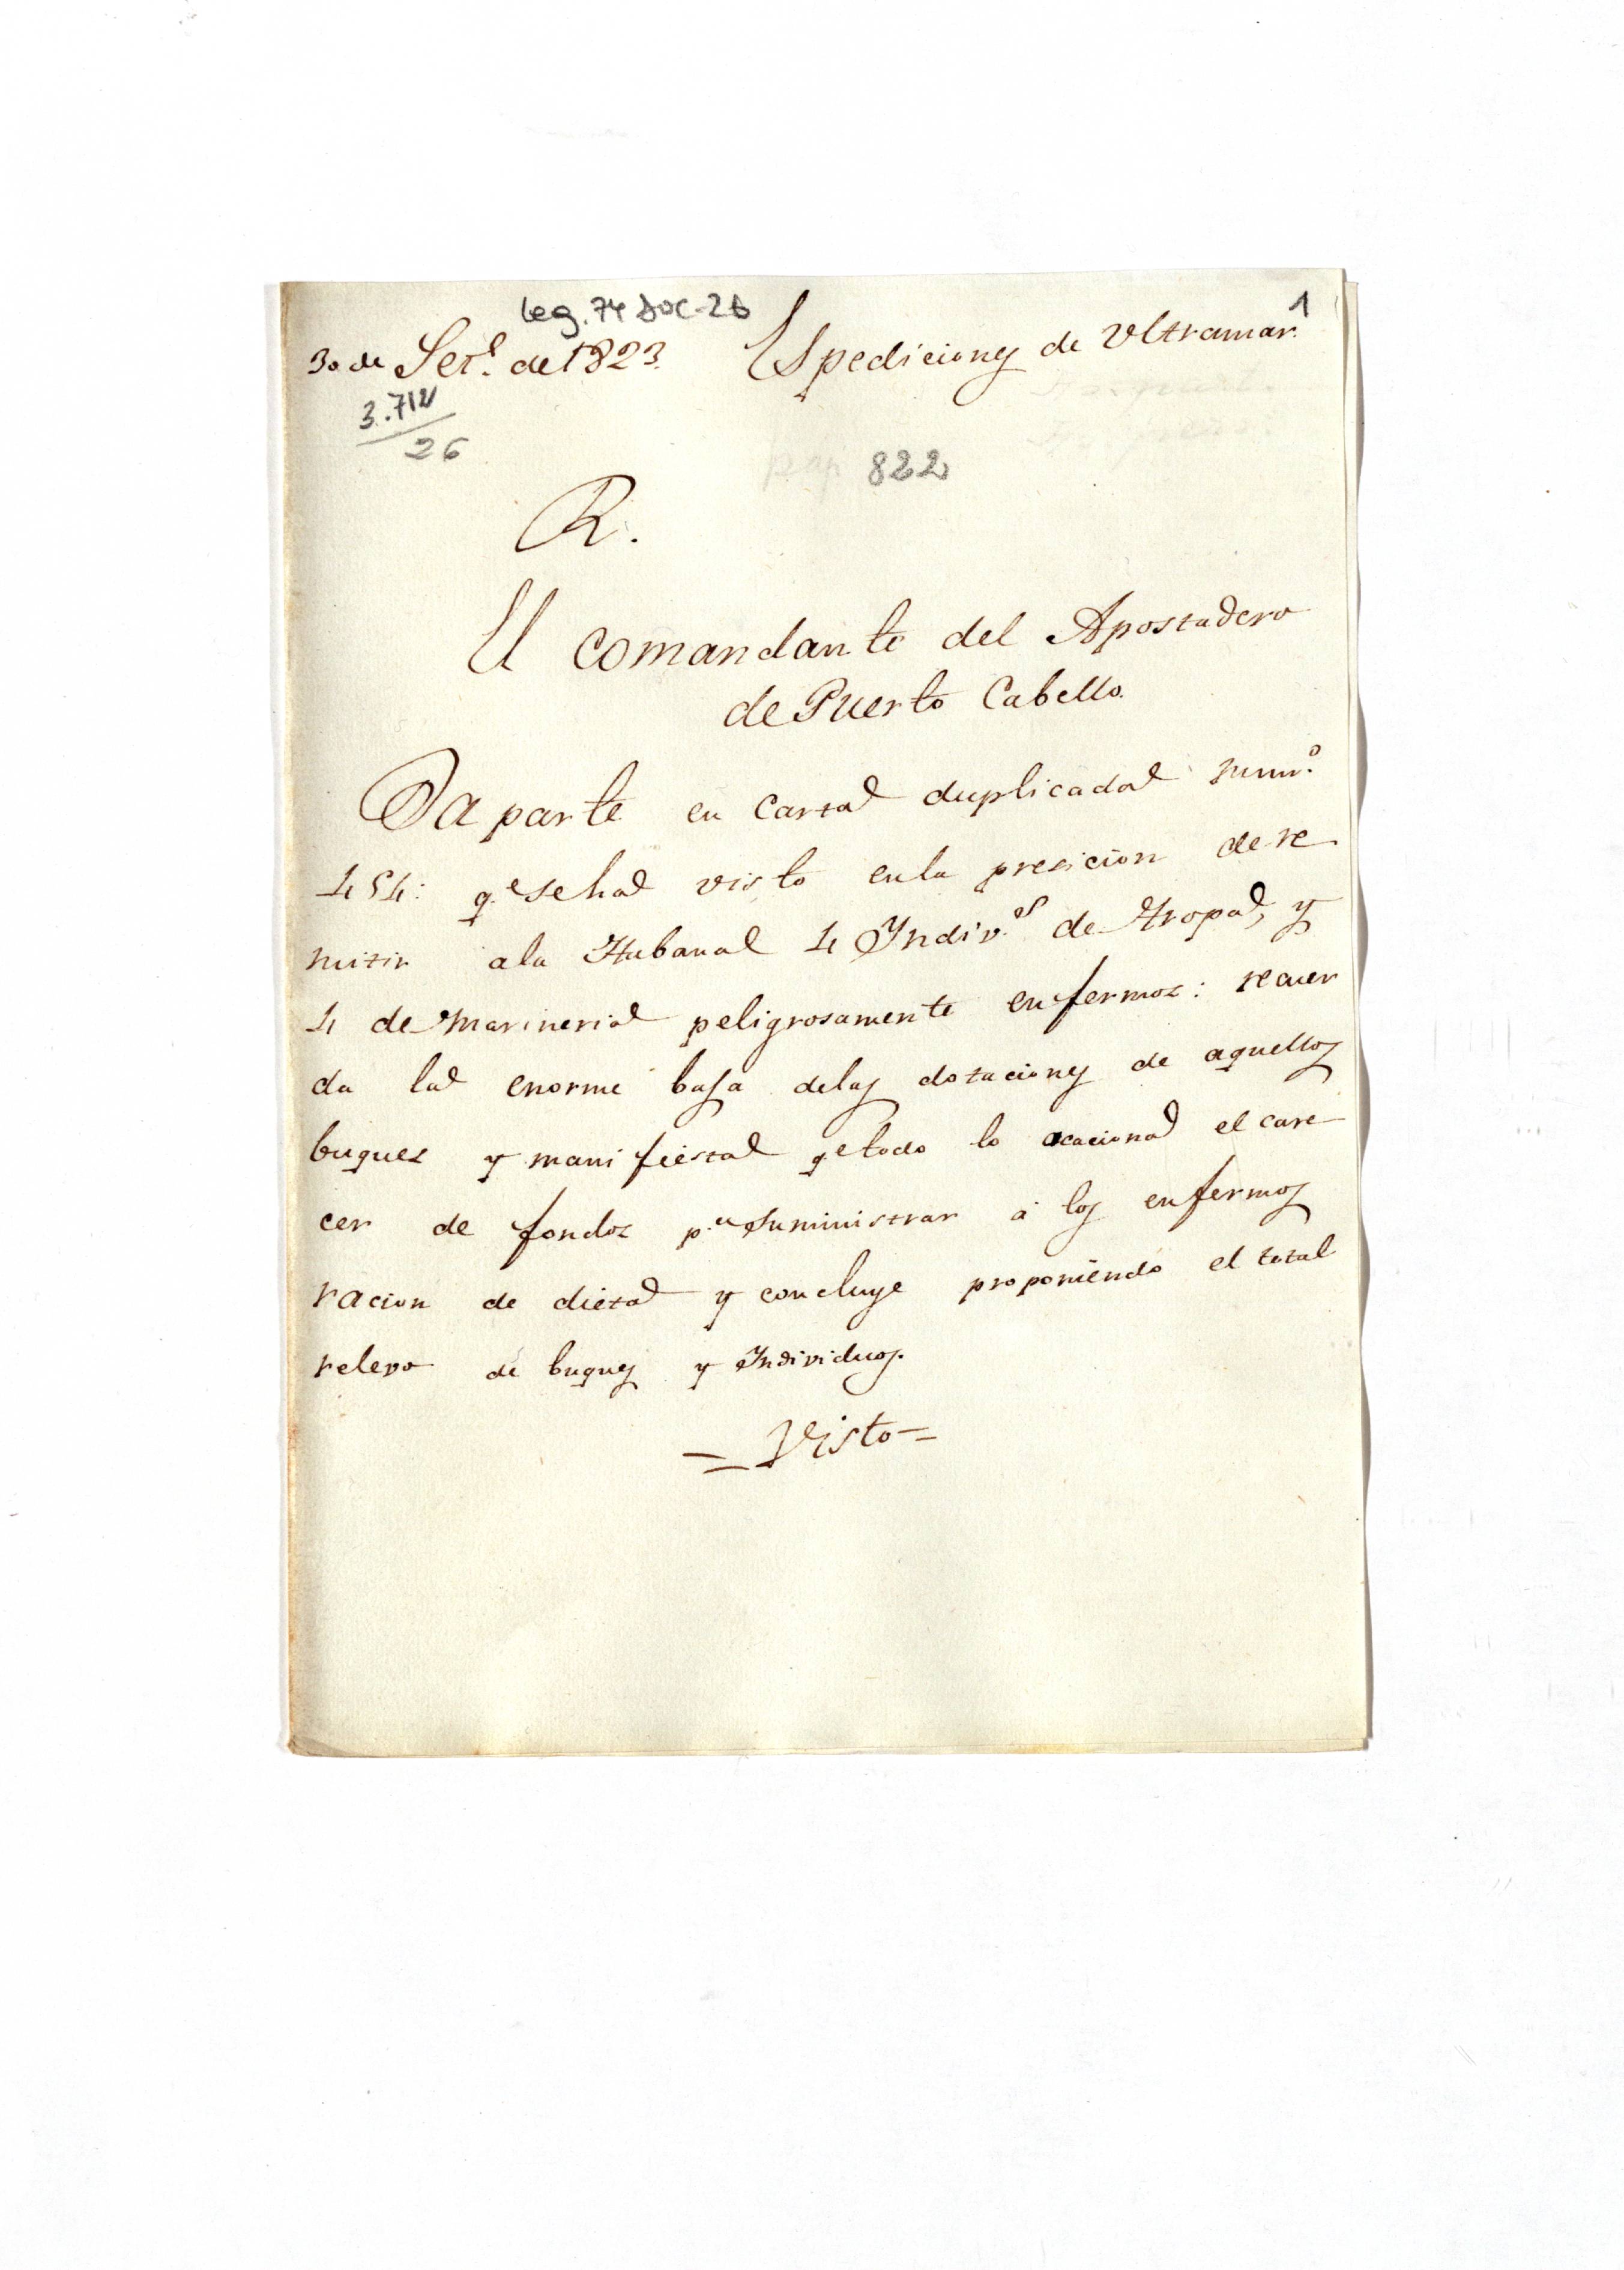 Leg. 74 Doc-26
1
30 de Set.e de 1823. Espediciones de Ultramar.
3.712
26
pap. 822
R.
El comandante del Apostadero
de Puerto Cabello.
Da parte en Carta duplicada num.o
454: q.e se ha visto en la presicion de re
mitir a la Habana 4 Indiv.os de tropa, y
4 de marineria peligrosamente enfermos: recuer
da la enorme baja de las dotaciones de aquellos
buques y manifiesta qe todo lo ocaciona el care
cer de fondos p.a suministrar á los enfermos
racion de dieta y concluye proponiendo el total
relevo de buques y Individuos.
= Visto =